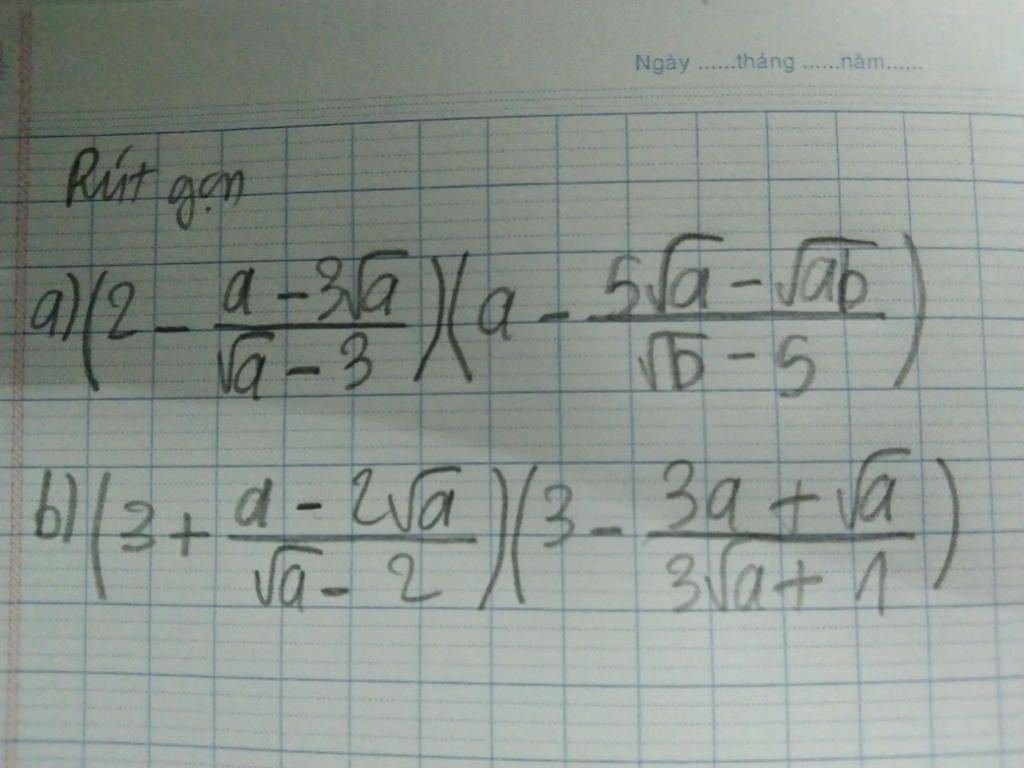 Ngày ......tháng ......năm......
Rút gọn
a) (2 - \frac{a - 3\sqrt{a}}{\sqrt{a} - 3})(a - \frac{5\sqrt{a} - \sqrt{ab}}{\sqrt{b} - 5})
b) (3 + \frac{a - 2\sqrt{a}}{\sqrt{a} - 2})(3 - \frac{3a + \sqrt{a}}{3\sqrt{a} + 1})